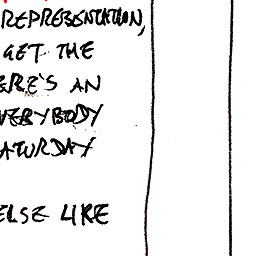 REPRESENTATION,
GET THE
ERE'S AN
VERYBODY
ATURDAY
ELSE LIKE